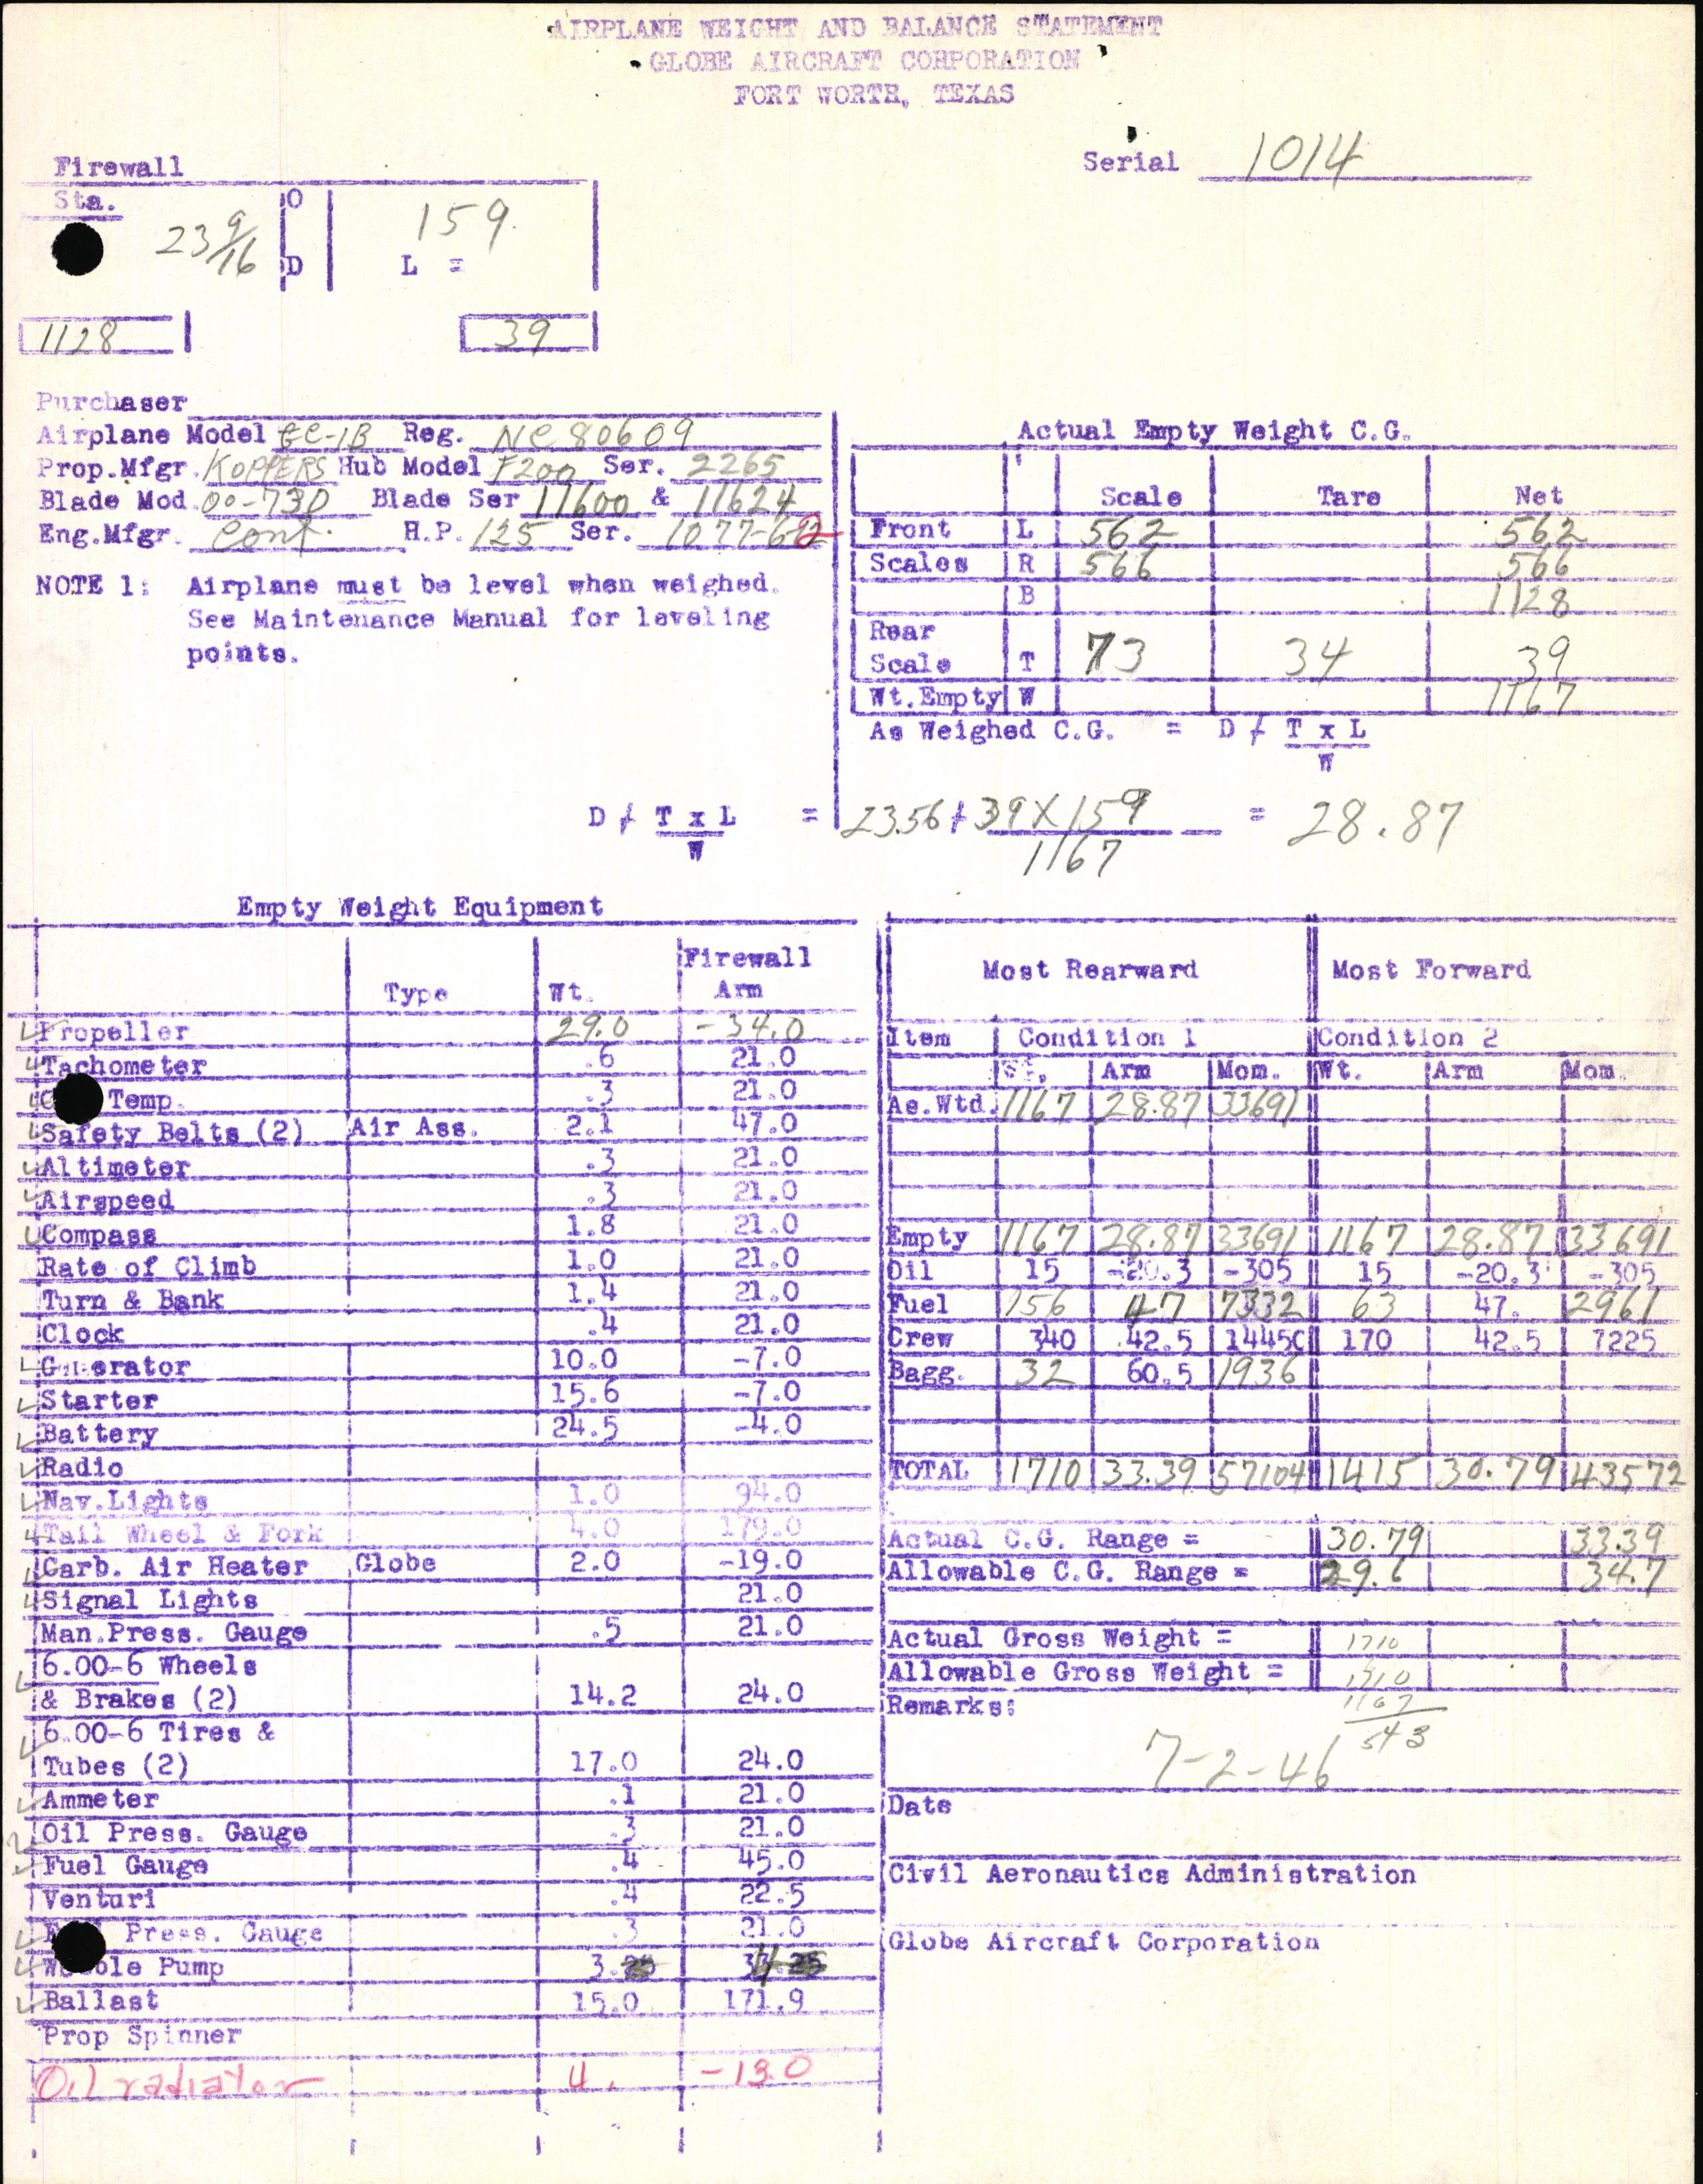 AIRPLANE WEIGHT AND BALANCE STATEMENT
GLOBE AIRCRAFT CORPORATION
FORT WORTH, TEXAS
Serial 1014
Firewall
Sta. O 159.
23 9/16 D L =
1128 39
Purchaser
Airplane Model GC-1B Reg. NC 80609
Prop.Mfgr. KOPPERS Hub Model F200 Ser. 2265
Blade Mod. 00-73D Blade Ser 11600 & 11624
Eng.Mfgr. Cont. H.P. 125 Ser. 1077-6-2
NOTE 1: Airplane must be level when weighed.
See Maintenance Manual for leveling
points.
Actual Empty Weight C.G.
Scale Tare Net
Front L 562 562
Scales R 566 566
B 1128
Rear
Scale T 73 34 39
Wt.Empty W 1167
As Weighed C.G. = D ⁄ T x L
W
D ⁄ T x L = 23.56 + 39 X 159 = 28.87
W 1167
Empty Weight Equipment
Type Wt. Firewall Arm
Propeller 29.0 -34.0
Tachometer .6 21.0
Temp. .3 21.0
Safety Belts (2) Air Ass. 2.1 47.0
Altimeter .3 21.0
Airspeed .3 21.0
Compass 1.8 21.0
Rate of Climb 1.0 21.0
Turn & Bank 1.4 21.0
Clock .4 21.0
Generator 10.0 -7.0
Starter 15.6 -7.0
Battery 24.5 -4.0
Radio
Nav.Lights 1.0 94.0
Tail Wheel & Fork 4.0 179.0
Carb. Air Heater Globe 2.0 -19.0
Signal Lights 21.0
Man.Press. Gauge .5 21.0
6.00-6 Wheels
& Brakes (2) 14.2 24.0
6.00-6 Tires &
Tubes (2) 17.0 24.0
Ammeter .1 21.0
Oil Press. Gauge .3 21.0
Fuel Gauge .4 45.0
Venturi .4 22.5
Press. Gauge .3 21.0
Pump 3.
Ballast 15.0 171.9
Prop Spinner
Oil radiator 4. -13.0
Most Rearward Most Forward
Item Condition 1 Condition 2
Wt. Arm Mom. Wt. Arm Mom.
As.Wtd. 1167 28.87 33691
Empty 1167 28.87 33691 1167 28.87 33691
Oil 15 -20.3 -305 15 -20.3 -305
Fuel 156 47 7332 63 47. 2961
Crew 340 42.5 14450 170 42.5 7225
Bagg. 32 60.5 1936
TOTAL 1710 33.39 57104 1415 30.79 43572
Actual C.G. Range = 30.79 33.39
Allowable C.G. Range = 29.6 34.7
Actual Gross Weight = 1710
Allowable Gross Weight = 1710
Remarks: 1167
543
7-2-46
Date
Civil Aeronautics Administration
Globe Aircraft Corporation